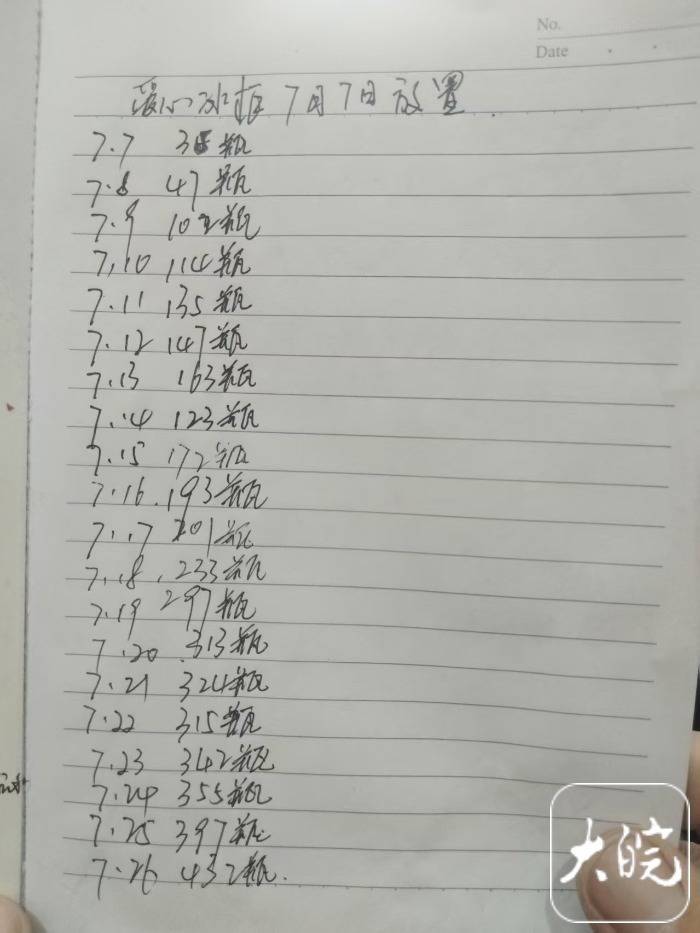 No.
Date
爱心冰柜 7月7日放置.
7.7 36瓶
7.8 47瓶
7.9 102瓶
7.10 114瓶
7.11 135瓶
7.12 147瓶
7.13 163瓶
7.14 123瓶
7.15 172瓶
7.16 193瓶
7.17 201瓶
7.18 233瓶
7.19 297瓶
7.20 313瓶
7.21 324瓶
7.22 315瓶
7.23 342瓶
7.24 355瓶
7.25 397瓶
7.26 432瓶.
大皖